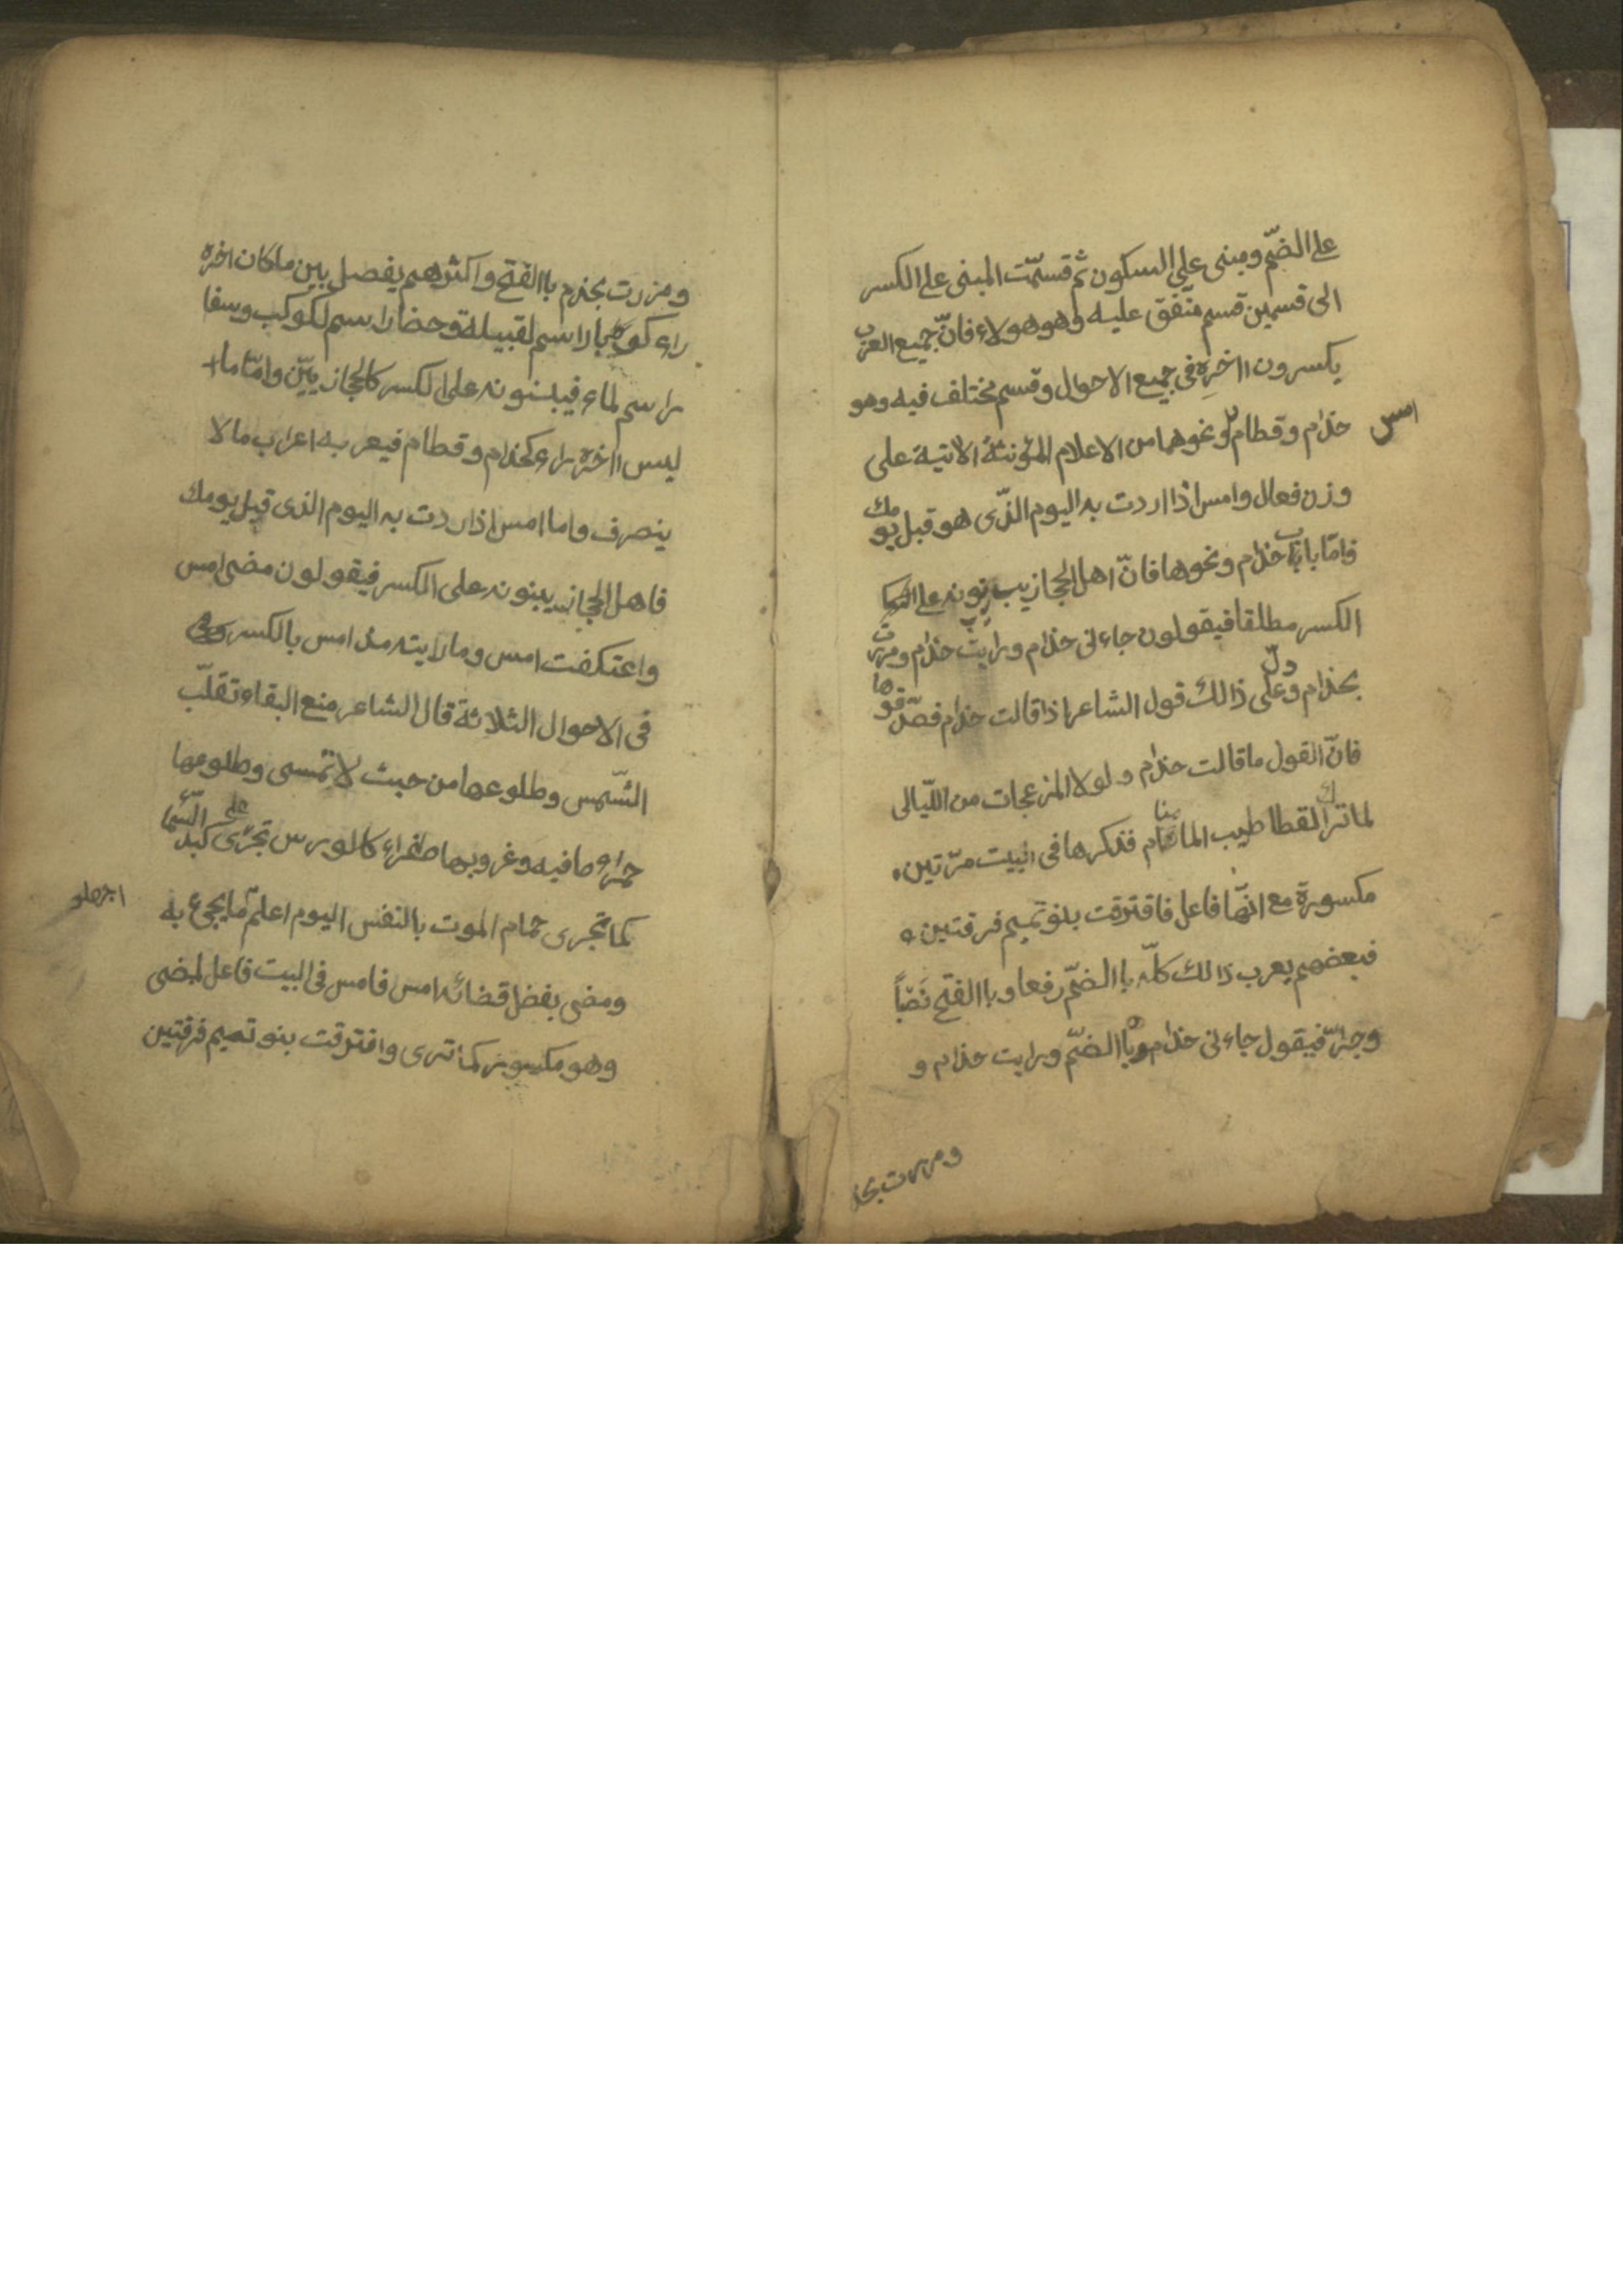 على الضمّ ومبنى على السكون ثم قسمّت المبنى على الكسر
الى قسمين قسم متّفق عليه وهو هولاء فانّ جميع العرب
يكسرون ااخره فى جميع الاحوال وقسم مختلف فيه وهو
حذام وقطام ونحوهما من الاعلام المؤنثة الاتية على
امس
وزن فعال وامس اذا اردت به اليوم الذّى هو قبل يومك
فامّا باب حذام ونحوها فانّ اهل الحجاز يبنونه على
الكسر مطلقا فيقولون جاءنى حذام ورايت حذام ومررت
بحذام وعلى ذالك قول الشاعر اذا قالت حذام فصدّقوها
فانّ القول ما قالت حذام ولولا المزعجات من اللّيالى
لما ترك القطا طيب المنام فذكرها فى البيت مرّتين
مكسورة مع انّها فاعل فافترقت بنو تميم فرقتين
فبعضهم يعرب ذالك كلّه باالضمّ رفعا وباالفتح نَصْباً
وجرّا فيقول جاءنى حذام باالضمّ ورايت حذام و
ومررت بحذ
ومررت بحذم باالفتح واكثرهم يفصل بين ما كان اخره
راء كوبار اسم لقبيلة وحضار اسم لكوكب وسفا
ر اسم لماء فيبنونه على الكسر كالحجازييّن وامّا ما
ليس ااخره راء كحذام وقطام فيعربه اعراب ما لا
ينصرف واما امس اذا ردت به اليوم الذى قبل يومك
فاهل الحجاز يبنونه على الكسر فيقولون مضى امس
واعتكفت امس وما رايته مذ امس بالكسر
فى الاحوال الثلاثة قال الشاعر منع البقاء تقلّب
الشّمس وطلوعها من حيث لا تمسى وطلوعها
حمراء صافيه وغروبها صفراء كالورس تجرى على كبد السّماء
كما تجرى حمام الموت بالنفس اليوم اعلم ما يجئ به
ومضى بفضل قضائه امس فامس فى البيت فاعل لمضى
وهو مكسور كما ترى وافترقت بنو تميم فرقتين